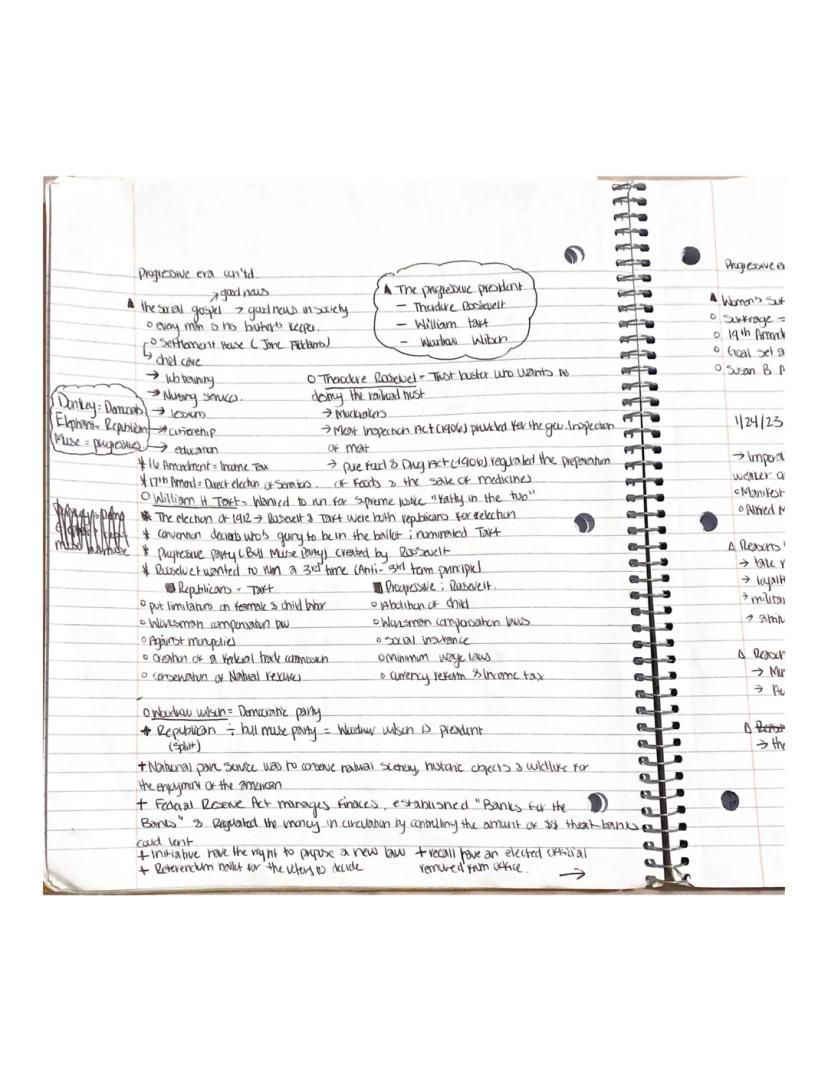 Progressive era con'td.
→ good news
▲ the social gospel → good news in society
o every man is his brother's keeper.
o Settlement House (Jane Addams)
↳ child care
→ Job training
→ Nursing services.
→ lessons
→ citizenship
→ education
▲ The progressive president
– Theodore Roosevelt
– William taft
– Woodrow Wilson
Donkey = Democrats
Elephant = Republican
Muse = progressives
o Theodore Roosevelt = Trust buster who wants to
destroy the railroad trust
→ Muckrakers
→ Meat Inspection Act (1906) provided for the gov. Inspection
of meat
→ pure food & Drug Act (1906) regulated the preparation
of foods & the sale of medicines
* 16 Amendment = Income Tax
* 17th Amend = Direct election of Senators.
o William H Taft = Wanted to run for supreme justice "Fatty in the tub"
* The election of 1912 → Roosevelt & Taft were both republicans for election
* convention decides who's going to be in the ballot ; nominated Taft
* Progressive party (Bull Muse Party) created by Roosevelt
* Roosevelt wanted to run a 3rd time (Anti- 3rd term principle)
■ Republicans - Taft
o put limitations on female & child labor
o Workman compensation law
o Against monopolies
o creation of a federal trade commission
o conservation of Natural Resources
■ Progressive : Roosevelt.
o Abolition of child
o Workman compensation laws
o social insurance
o minimum wage laws
o currency reform & Income tax
o Woodrow wilson = Democratic party
+ Republican ÷ bull muse party = Woodrow wilson is president
(split)
+ National park service was to conserve natural scenery, historic objects & wildlife for
the enjoyment of the american
+ Federal Reserve Act manages finaces, established "Banks for the
Banks" & Regulated the money in circulation by controlling the amount of $$ that banks
could lent
+ Initiative have the right to propose a new law + recall have an elected official
+ Referendum ballot for the voters to decide removed from office.
→
Progressive e
▲ Women's Suf
o Suffrage =
o 19th Amend
o Goal set a
o Susan B. A
1/24/23
→ Imperia
weaker a
o Manifest
o Alfred M
Δ Reasons
→ take r
→ loyalt
→ militar
Δ Reason
→ the